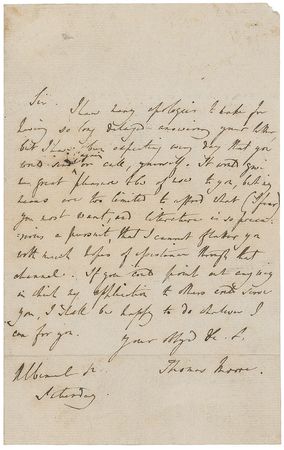 Sir. I have many apologies to make for
having so long delayed answering your letter,
but I have been expecting every day that you
would send or call, yourself. It would give
me great pleasure to be of use to you, but my
means are too limited to afford what
you most want, and literature is so preca-
rious a pursuit, that I cannot flatter you
with much hopes of assistance through that
channel. If you could point out any way
in which my application to others could serve
you, I shall be happy to do whatever I
can for you.
Your
Thomas Moore.
Albemarle St.
Saturday.